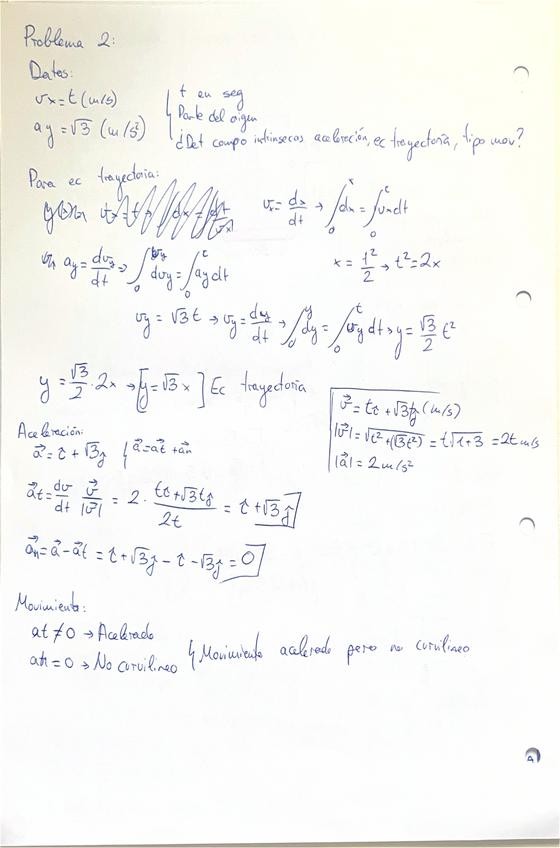 Problema 2:
Datos:
vx = t (m/s)
ay = √3 (m/s²)
t en seg
Parte del origen
¿Det compo intrínsecas aceleración, ec trayectoria, tipo mov?
Para ec trayectoria:
vx = dx/dt → ∫₀ˣ dx = ∫₀ᵗ vx dt
x = t²/2 → t² = 2x
ay = dvy/dt → ∫₀^vy dvy = ∫₀ᵗ ay dt
vy = √3 t → vy = dy/dt → ∫₀ʸ dy = ∫₀ᵗ vy dt → y = √3/2 t²
y = √3/2 · 2x → [y = √3 x] Ec trayectoria
v⃗ = t î + √3 t ĵ (m/s)
|v⃗| = √(t² + (√3t²)) = t√(1+3) = 2t m/s
|a⃗| = 2 m/s²
Aceleración:
a⃗ = î + √3 ĵ { a⃗ = a⃗t + a⃗n
a⃗t = dv/dt v⃗/|v⃗| = 2 · (t î + √3 t ĵ)/2t = î + √3 ĵ
a⃗n = a⃗ - a⃗t = î + √3 ĵ - î - √3 ĵ = 0
Movimiento:
at ≠ 0 → Acelerado
an = 0 → No curvilíneo
Movimiento acelerado pero no curvilíneo